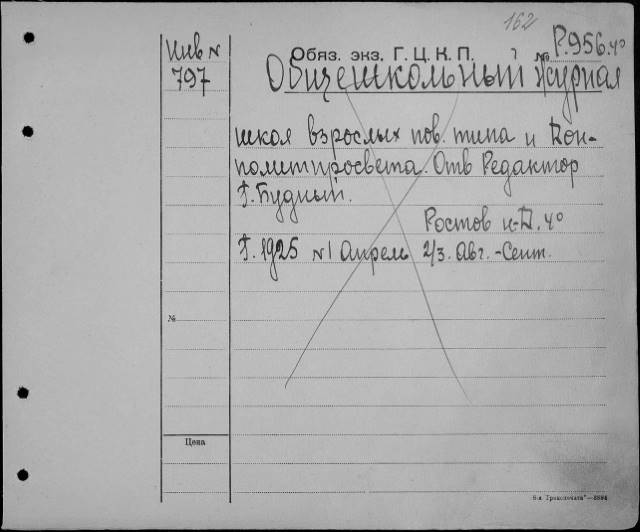 162
Инв N
797
Обяз. экз. Г. Ц. К. П.
№ Р.956.4°
Общешкольный журнал
школ взрослых пов. типа и Дон-
политпросвета. Отв Редактор
Г. Будный.
Ростов н-Д. 4°
Г. 1925 N1 Апрель 2/3. Авг.-Сент.
№
Цена